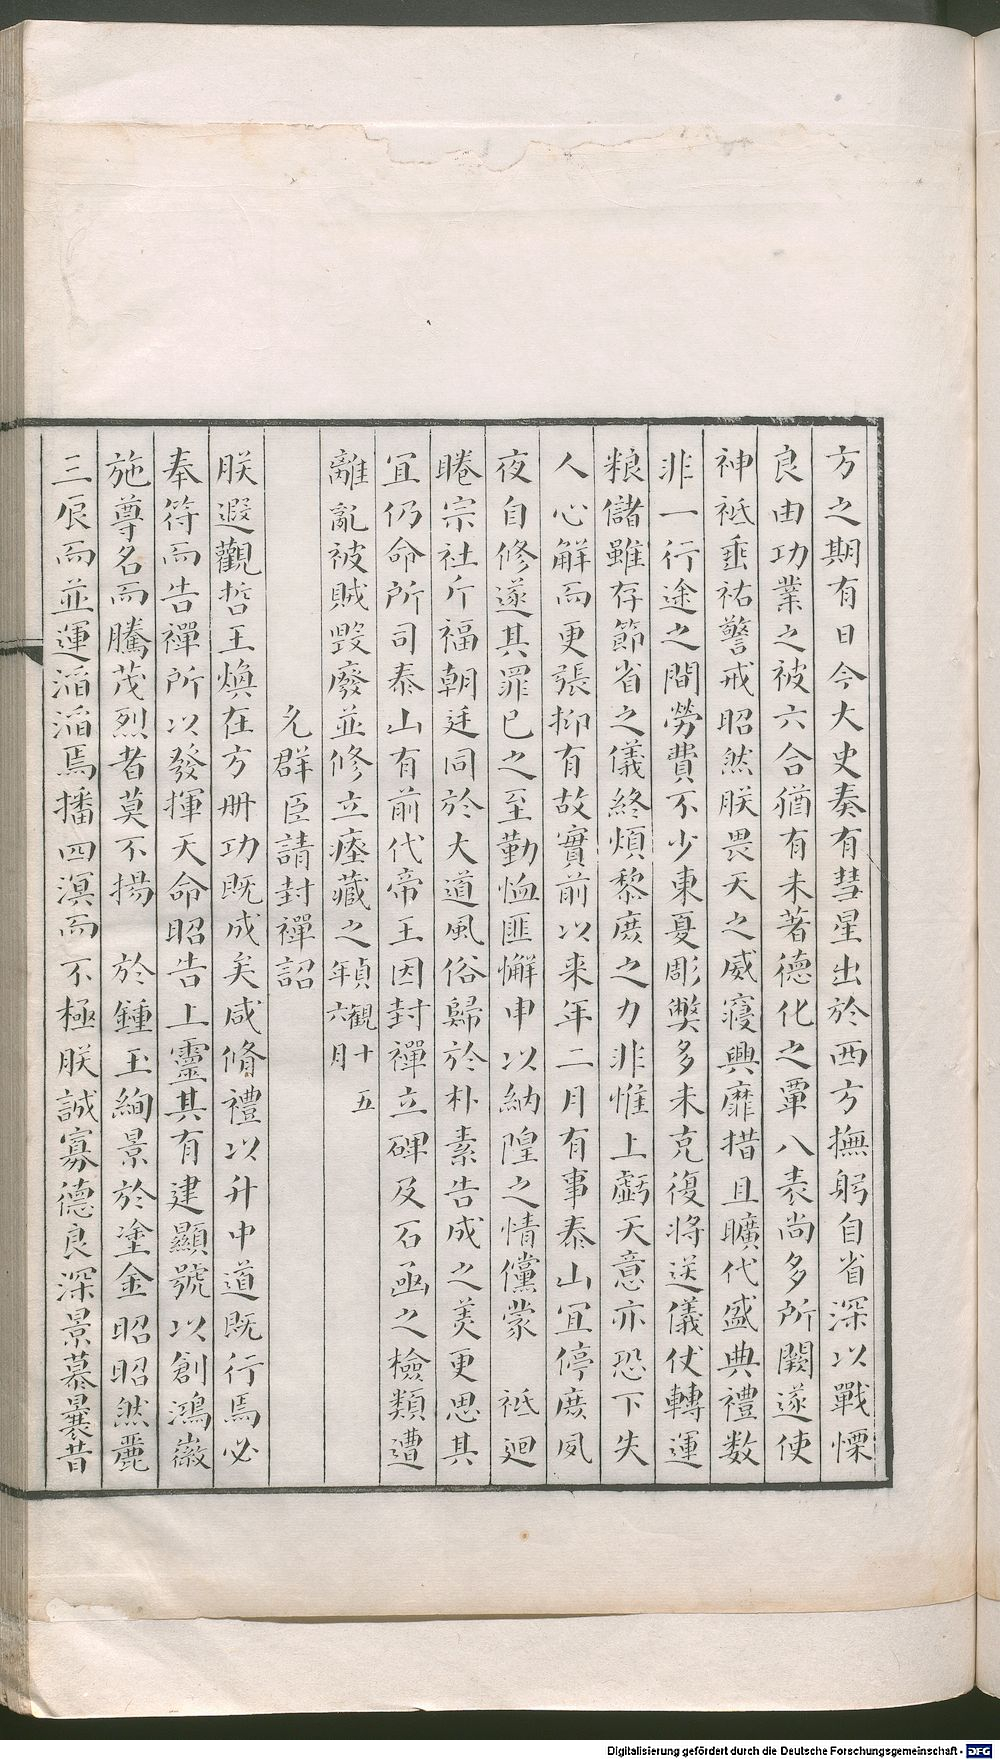 方之期有日今大史奏有彗星出於西方撫躬自省深以戰慄
良由功業之被六合猶有未著德化之覃八表尚多所闕遂使
神祗垂祐警戒昭然朕畏天之威寢興靡措且曠代盛典禮数
非一行途之間勞費不少東夏彫弊多未克復將送儀仗轉運
粮儲雖存節省之儀終煩黎庶之力非惟上虧天意亦恐下失
人心解而更張抑有故實前以来年二月有事泰山宜停庶夙
夜自修遂其罪已之至勤恤匪懈申以納隍之情儻蒙　祗迴
睠宗社斤福朝廷同於大道風俗歸於朴素告成之美更思其
宜仍命所司泰山有前代帝王因封禪立碑及石函之檢類遭
離亂被賊毀廢並修立瘞藏之貞觀十五年六月
允群臣請封禪詔
朕遐觀哲王煥在方册功既成矣咸脩禮以升中道既行焉必
奉符而告禪所以發揮天命昭告上靈其有建顯號以創鴻徽
施尊名而騰茂烈者莫不揚　於鍾玉絢景於塗金昭昭然麗
三辰而並運滔滔焉播四溟而不極朕誠寡德良深景慕曩昔
Digitalisierung gefördert durch die Deutsche Forschungsgemeinschaft - DFG